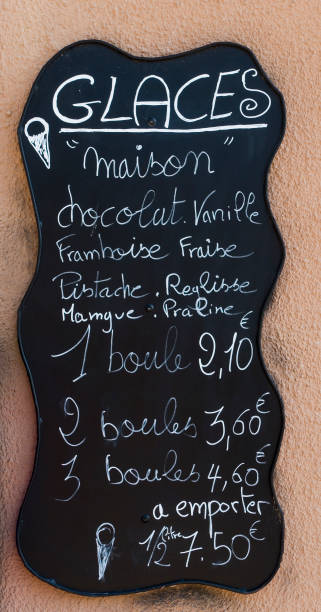 GLACES
"maison"
chocolat. Vanille
Framboise Fraise
Pistache. Reglisse
Mangue. Praline
1 boule 2,10€
2 boules 3,60€
3 boules 4,60€
a emporter
1/2 litre 7.50€